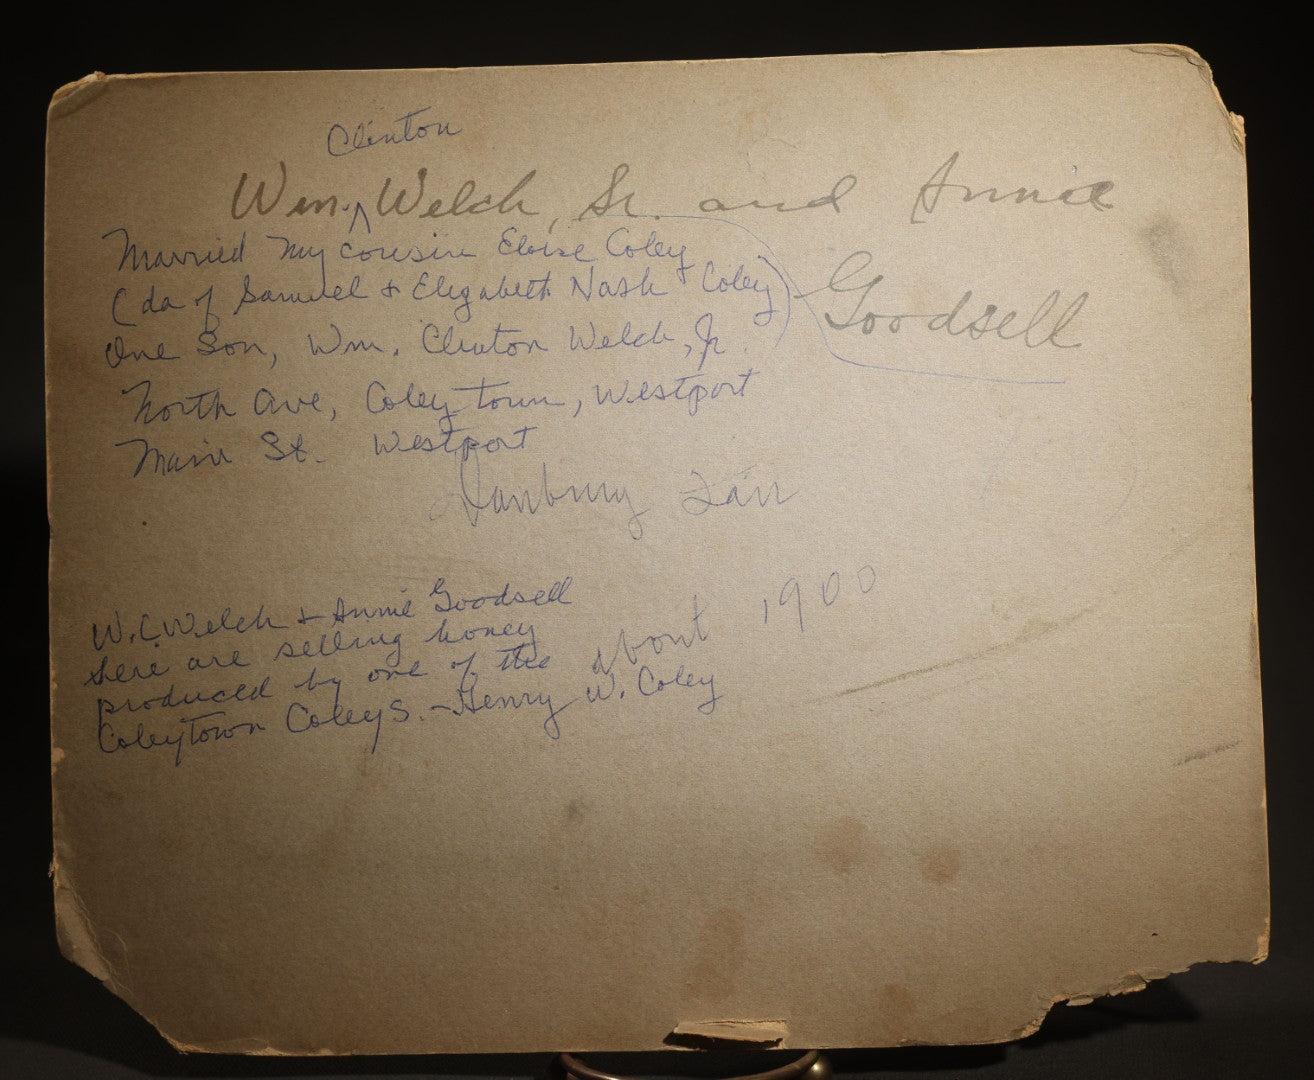 Clinton
Wm. ^ Welch, Sr. and Annie
Goodsell
Married my cousin Eloise Coley
(da of Samuel & Elizabeth Nash Coley)
One Son, Wm. Clinton Welch, Jr.
North Ave, Coleytown, Westport
Main St. Westport
Danbury Fair
about 1900
W.C. Welch & Annie Goodsell
here are selling honey
produced by one of the
Coleytown Coleys. - Henry W. Coley